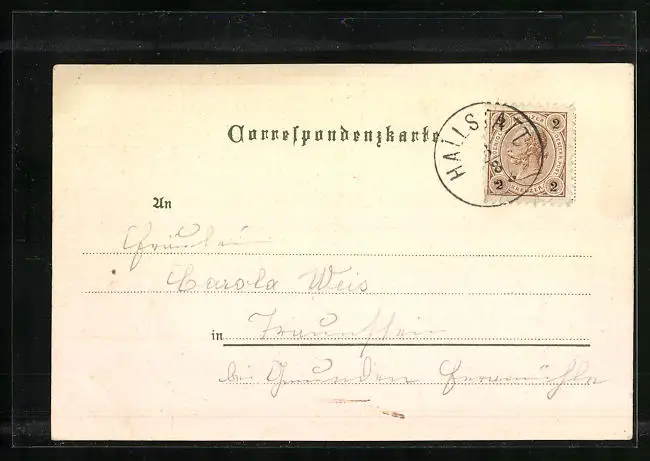 Correspondenzkarte
HALLSTATT
2 2
2 2
KREUZER
An
Fräulein
Carola Weis
in Traunstein
bei Gmunden